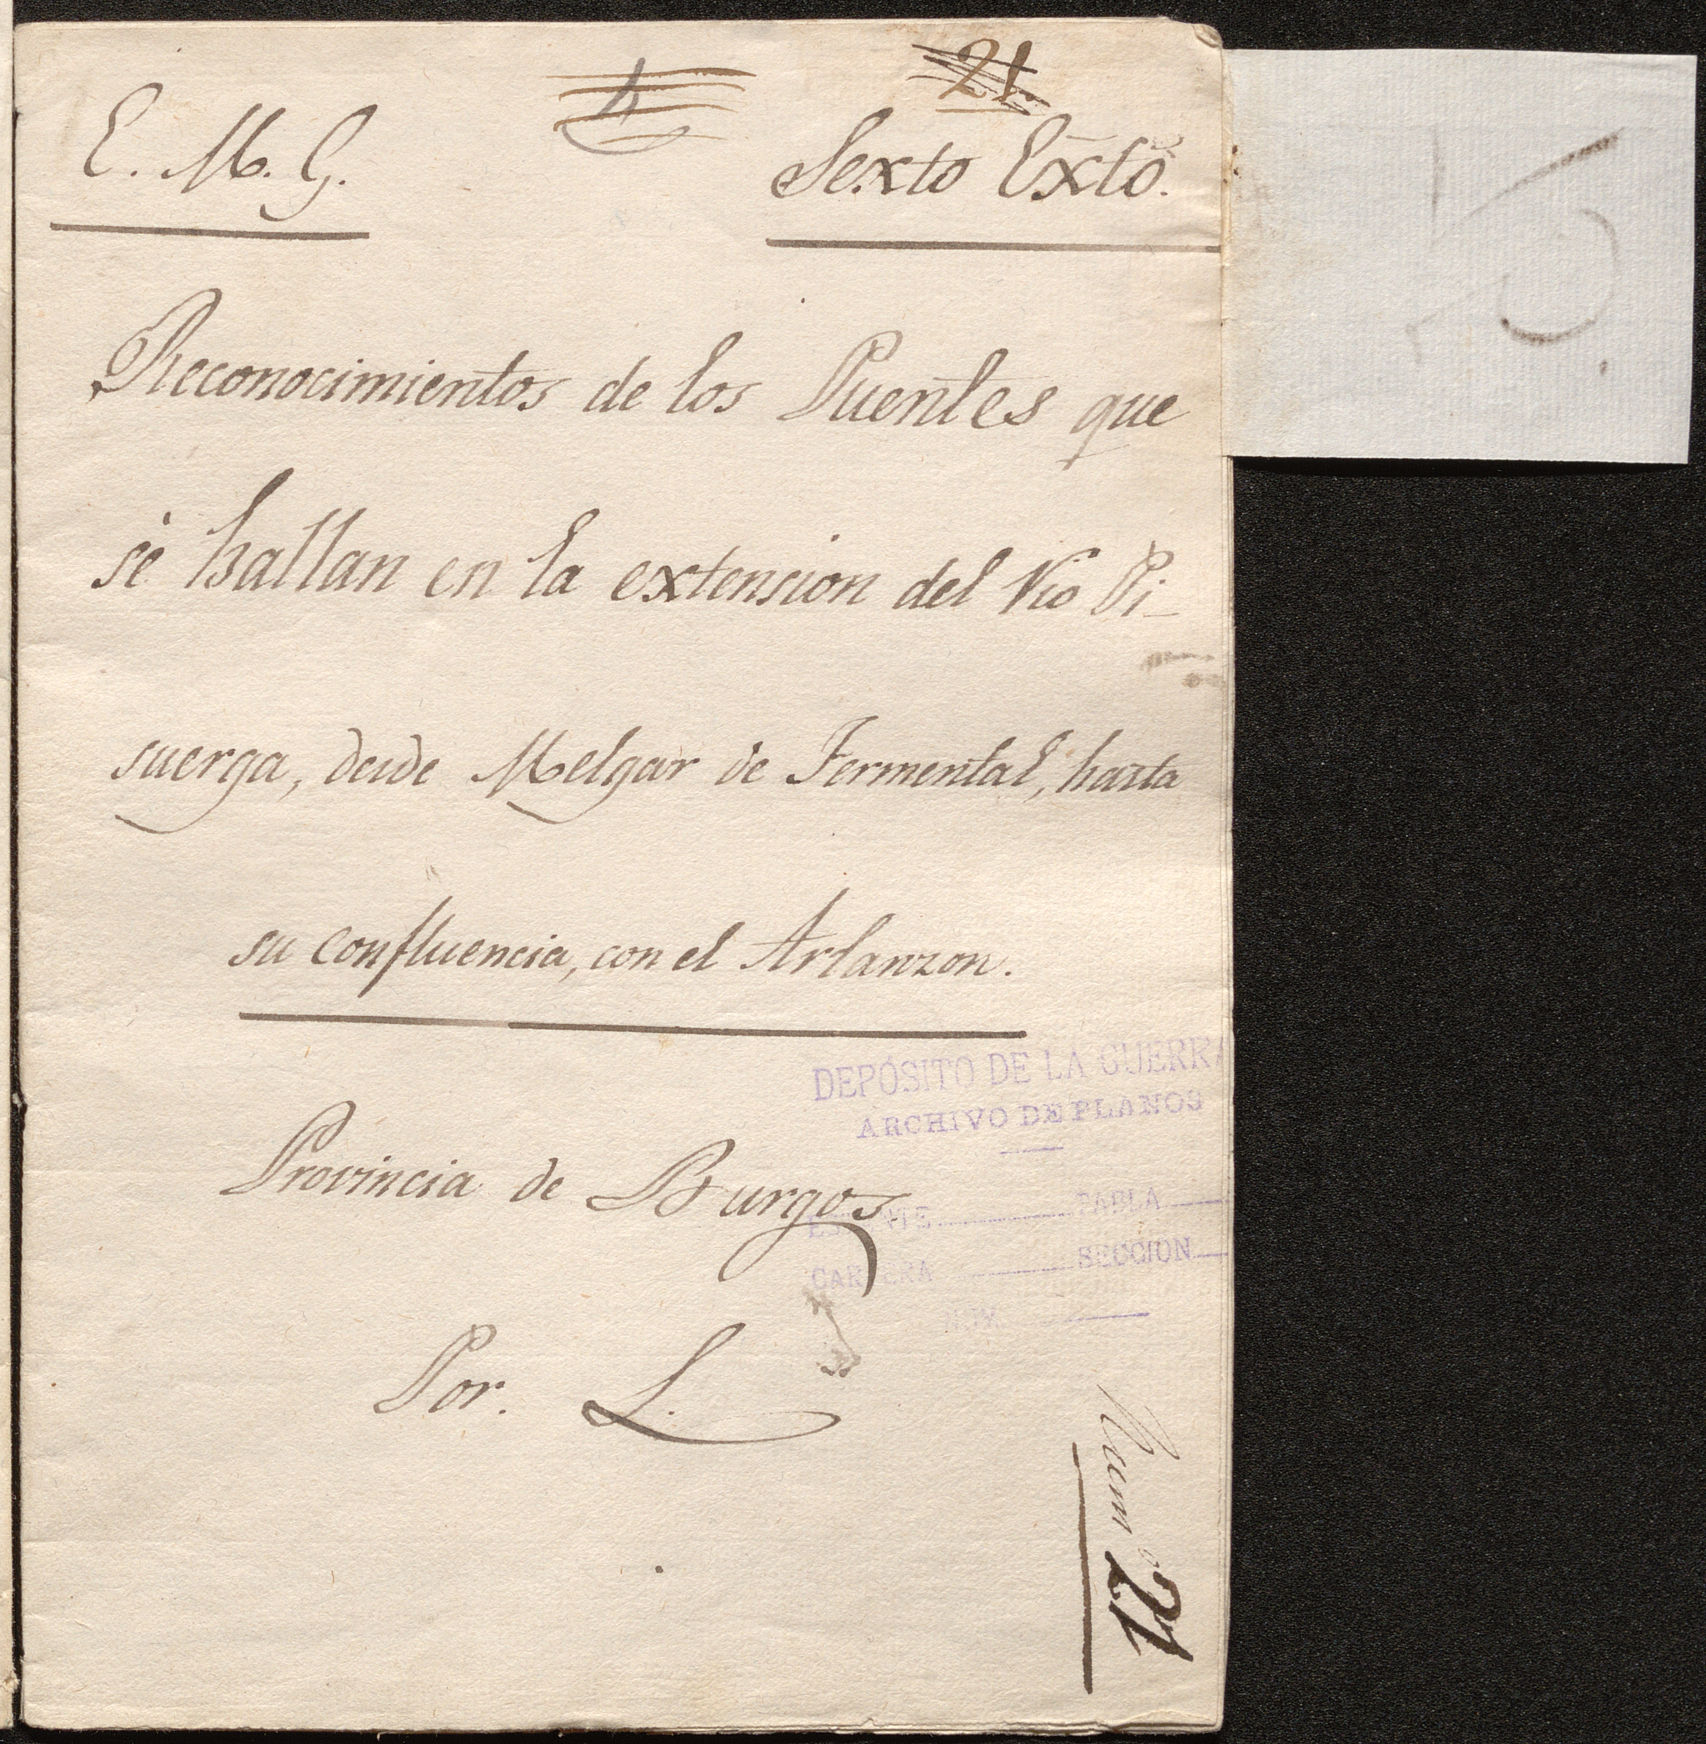 21
E. M. G.
Sexto Exto.
Reconocimientos de los Puentes que
se hallan en la extension del Rio Pi-
suerga, desde Melgar de Fermental, hasta
su confluencia, con el Arlanzon.
DEPÓSITO DE LA GUERRA
ARCHIVO DE PLANOS
Provincia de Burgos
TABLA
CARTERA SECCION
NUM.
Por. L.
Num.o 21